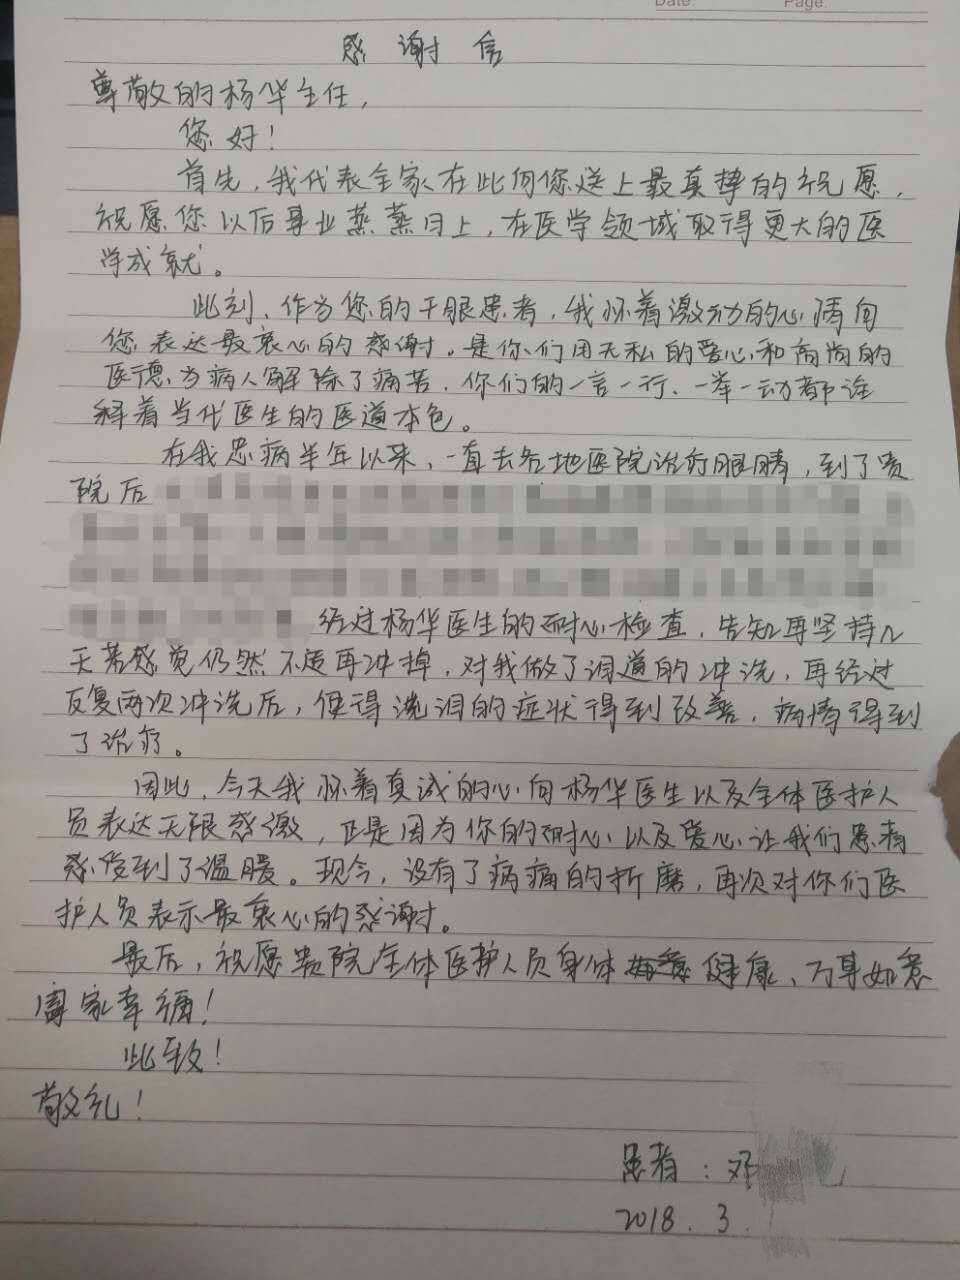 Date:   Page:
感谢信
尊敬的杨华主任，
您好！
首先，我代表全家在此向您送上最真挚的祝愿，
祝愿您以后事业蒸蒸日上，在医学领域取得更大的医
学成就。
此刻，作为您的干眼患者，我怀着激动的心情向
您表达最衷心的感谢。是你们用无私的爱心和高尚的
医德，为病人解除了痛苦，你们的一言一行、一举一动都诠
释着当代医生的医道本色。
在我患病半年以来，一直去各地医院治疗眼睛，到了贵
院后
经过杨华医生的耐心检查，告知再坚持几
天若感觉仍然不适再冲掉，对我做了泪道的冲洗，再经过
反复两次冲洗后，使得溢泪的症状得到改善，病情得到
了治疗。
因此，今天我怀着真诚的心向杨华医生以及全体医护人
员表达无限感激，正是因为你的耐心以及爱心让我们患者
感受到了温暖。现今，没有了病痛的折磨，再次对你们医
护人员表示最衷心的感谢。
最后，祝愿贵院全体医护人员身体健康、万事如意
阖家幸福！
此致！
敬礼！
患者：邓
2018.3.